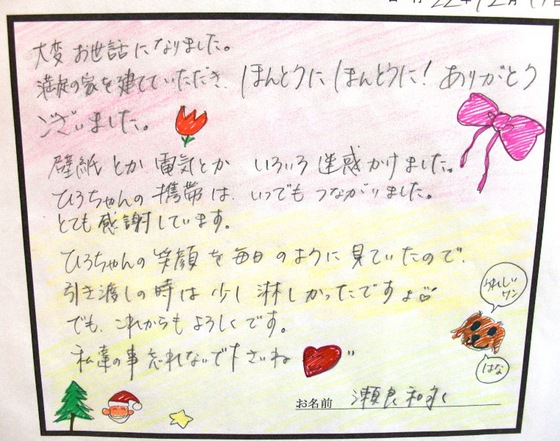 22年12月
大変お世話になりました。
満足の家を建てていただき、ほんとうにほんとうに!ありがとう
ございました。
壁紙とか電気とか いろいろ迷惑かけました。
ひろちゃんの携帯は、いつでもつながりました。
とても感謝しています。
ひろちゃんの笑顔を毎日のように見ていたので、
引き渡しの時は少し淋しかったですょ
でも、これからもよろしくです。
私達の事忘れないで下さいね
うれしいワン
はな
お名前 瀬良和